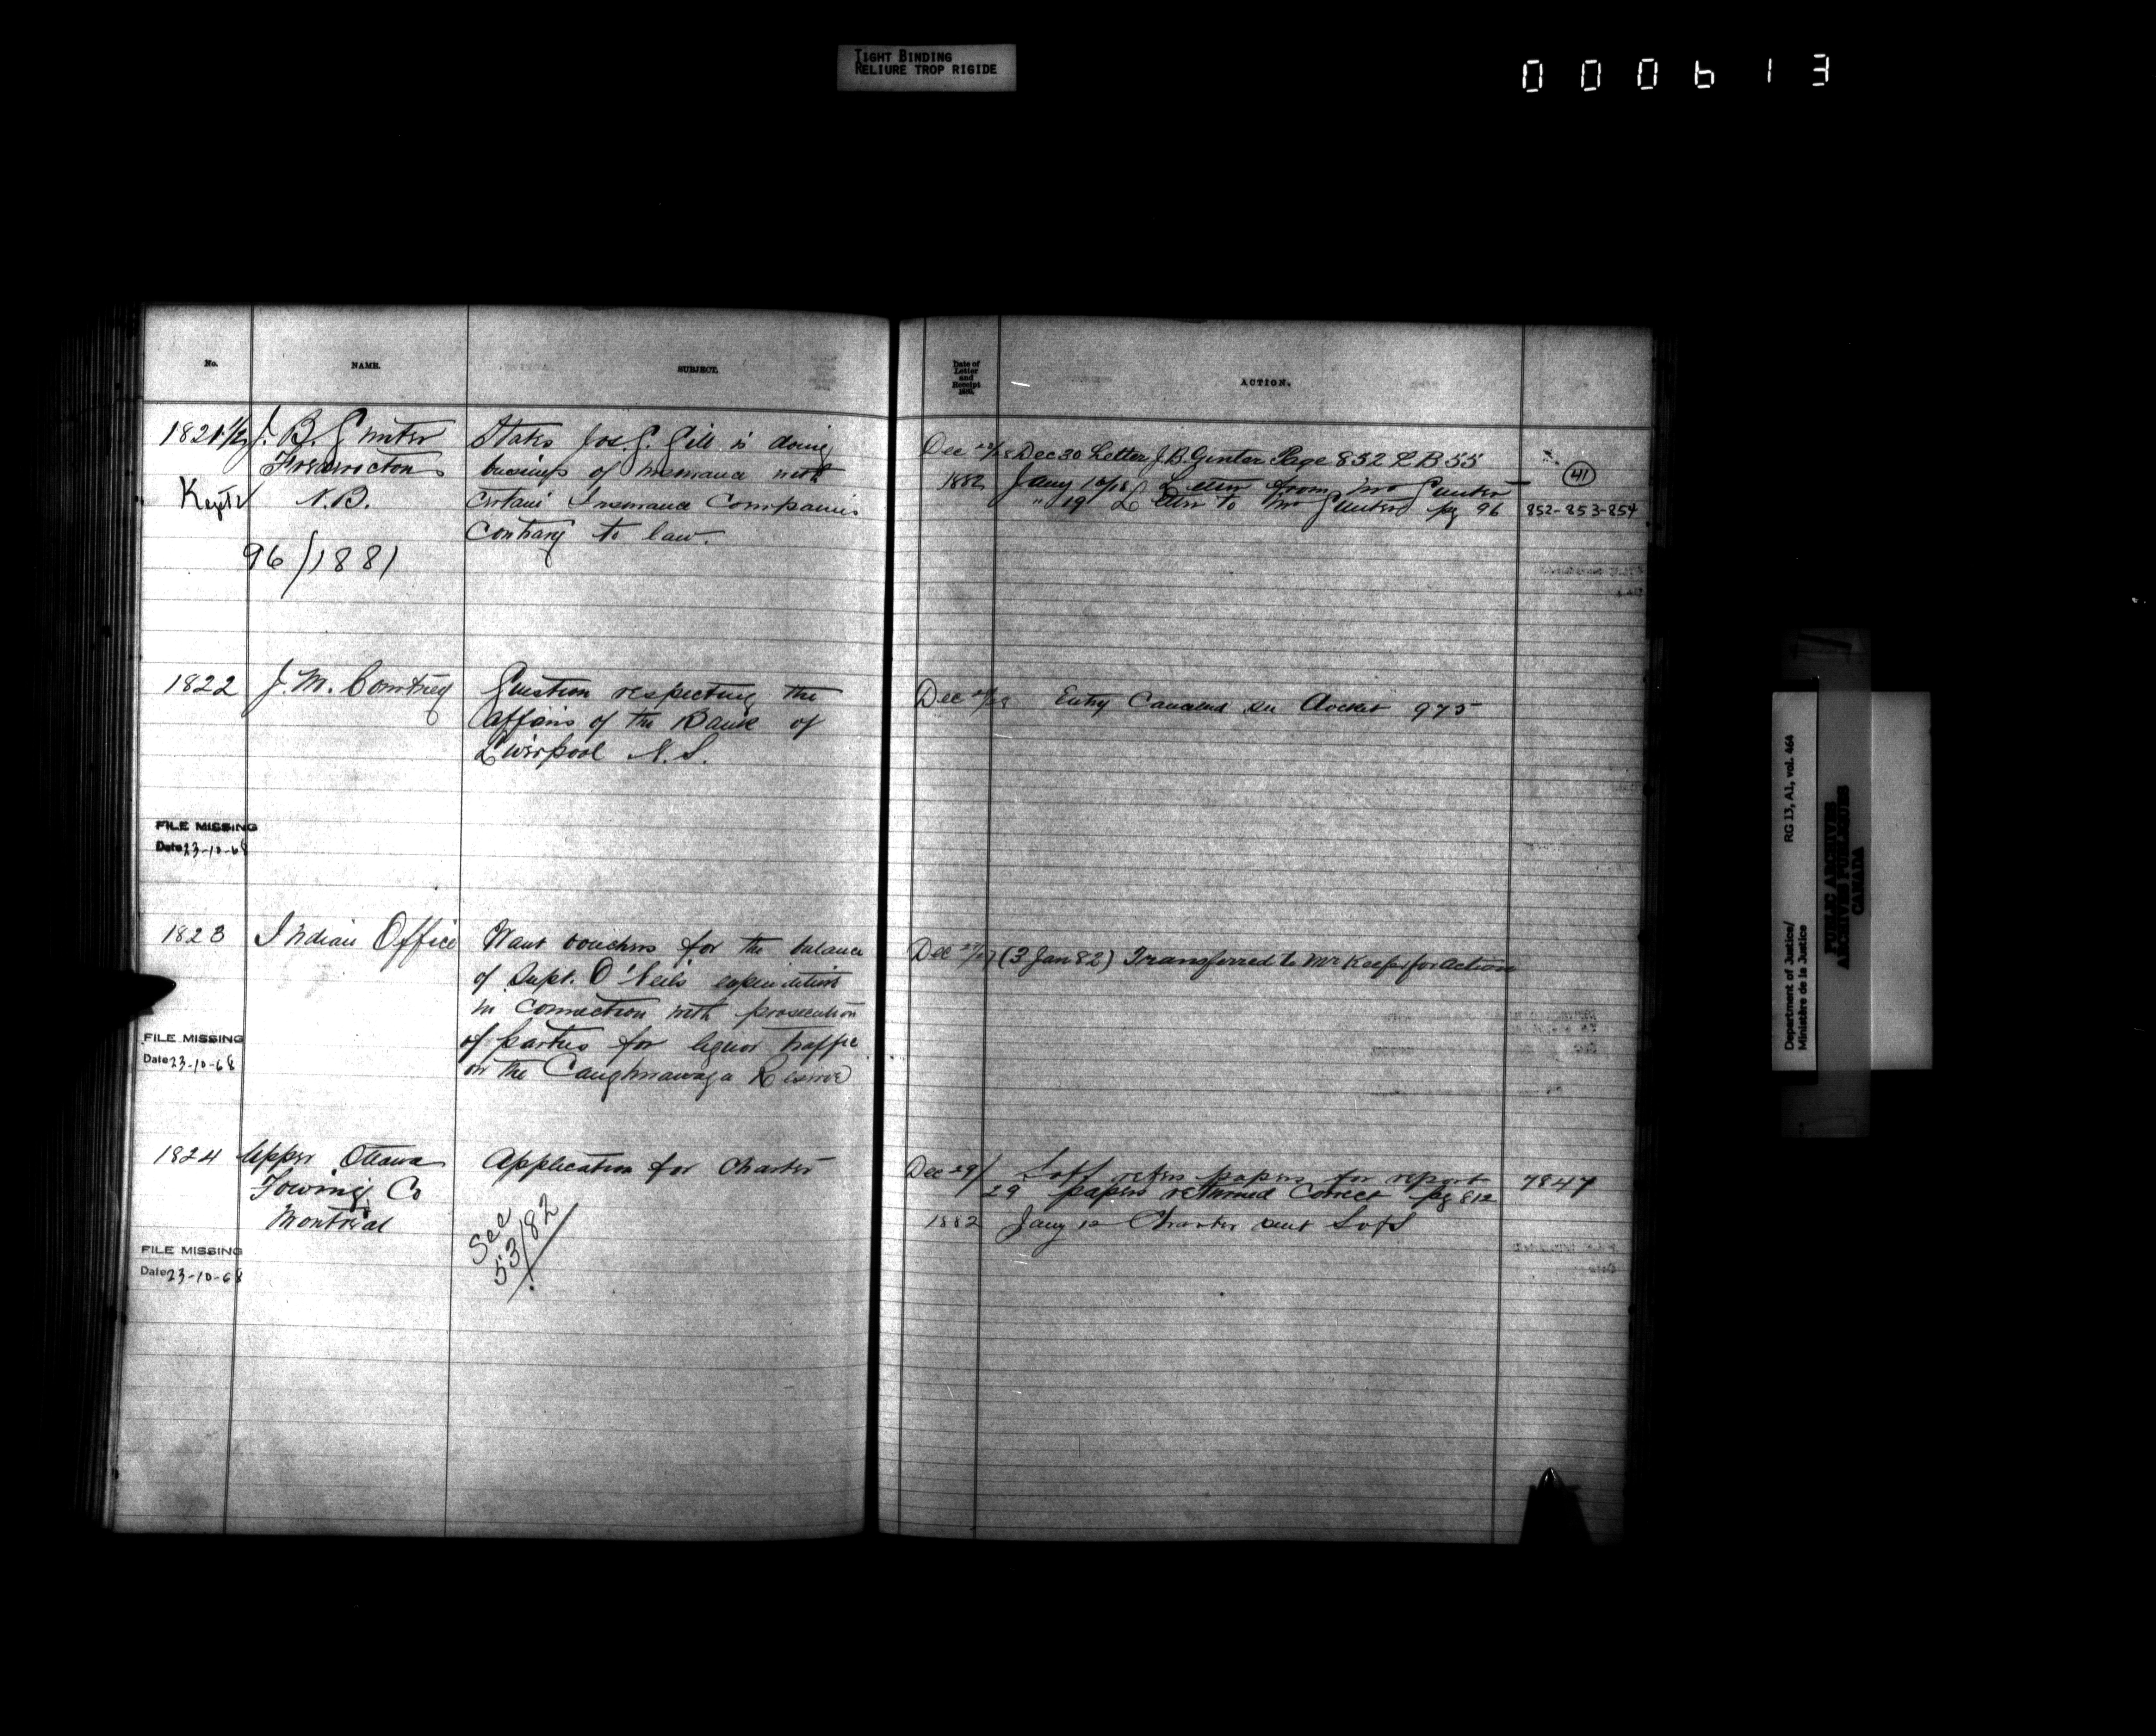 TIGHT BINDING
RELIURE TROP RIGIDE
000613
No.
NAME.
SUBJECT.
Date of
Letter
and
Receipt
ACTION.
1821½ J. B. Gunter
Fredericton
Kept N.B.
96/1881
States Jos. G. Gill is doing
business of insurance with
certain Insurance Companies
contrary to law.
Dec 28/28 Dec 30 Letter J.B. Gunter Page 852 LB 55
1882 Jany 16/18 Letter from Mr Gunter
" 19 Letter to Mr Gunter pg 96
41
852-853-854
1822 J. M. Courtney
Question respecting the
affairs of the Bank of
Liverpool N.S.
Dec Entry Canceled see Docket 975
FILE MISSING
Date 23-10-68
1823 Indian Office
Want vouchers for the balance
of Supt. O'Neil's expenditure
in connection with prosecution
of parties for liquor traffic
on the Caughnawaga Reserve
Dec 27/27 (3 Jan 82) Transferred to Mr Keefer for action
FILE MISSING
Date 23-10-68
1824 Upper Ottawa
Towing Co
Montreal
Application for Charter
See
53/82
Dec 29/ S of S refers papers for report
29 papers returned Correct pg 812
1882 Jany 12 Charter sent S of S
7847
FILE MISSING
Date 23-10-68
Department of Justice/
Ministère de la Justice
RG 13, A1, vol. 464
PUBLIC ARCHIVES
ARCHIVES PUBLIQUES
CANADA